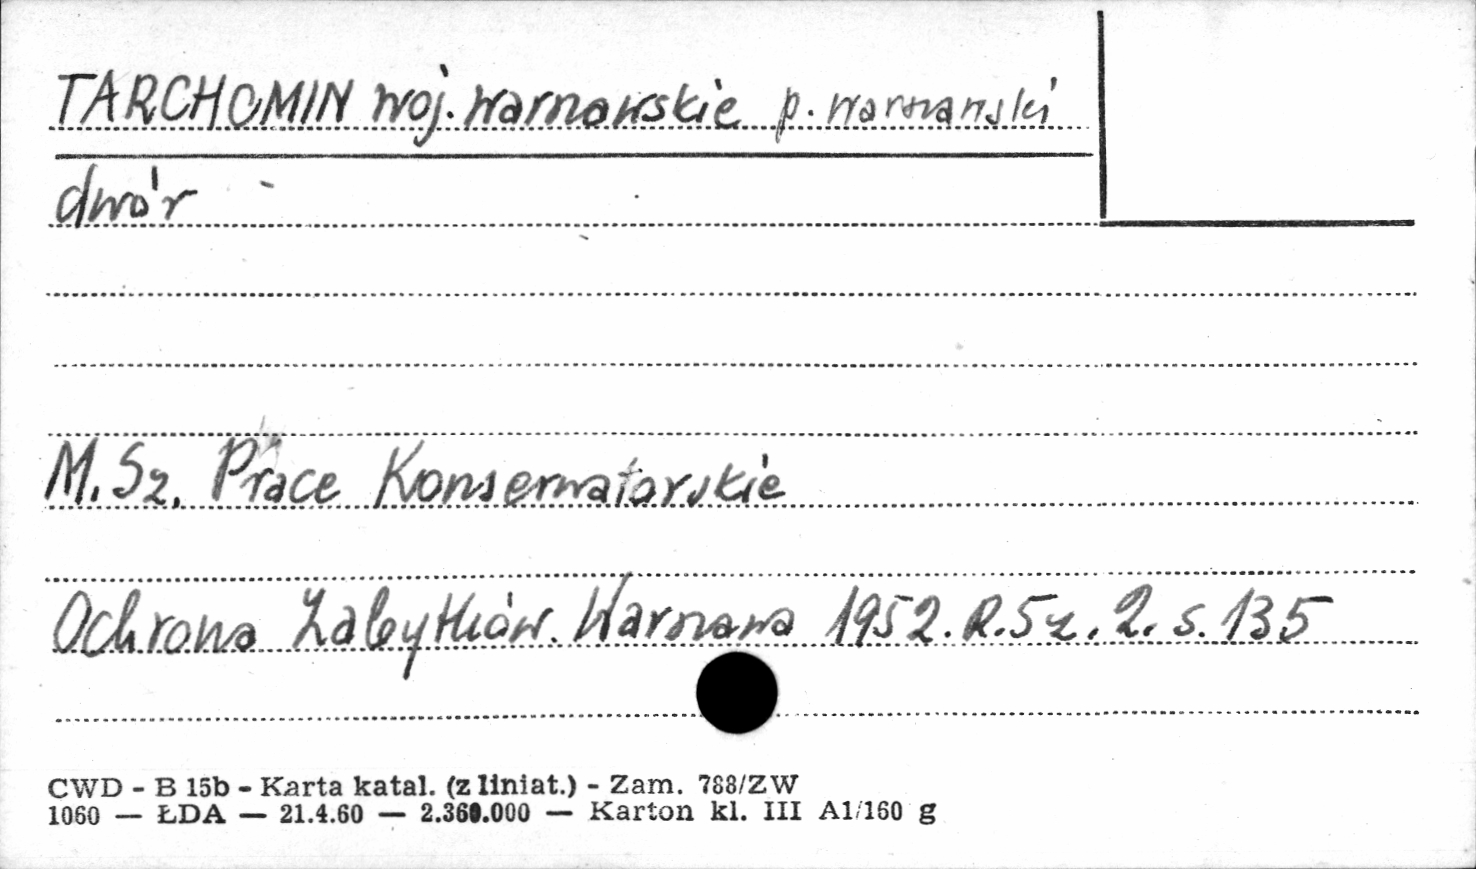 TARCHOMIN woj. Warszawskie p. warszawski
dwór
M. Sz. Prace Konserwatorskie
Ochrona Zabytków. Warszawa 1952. R. 5 z. 2. s. 135
CWD - B 15b - Karta katal. (z liniat.) - Zam. 788/ZW
1060 — ŁDA — 21.4.60 — 2.360.000 — Karton kl. III A1/160 g